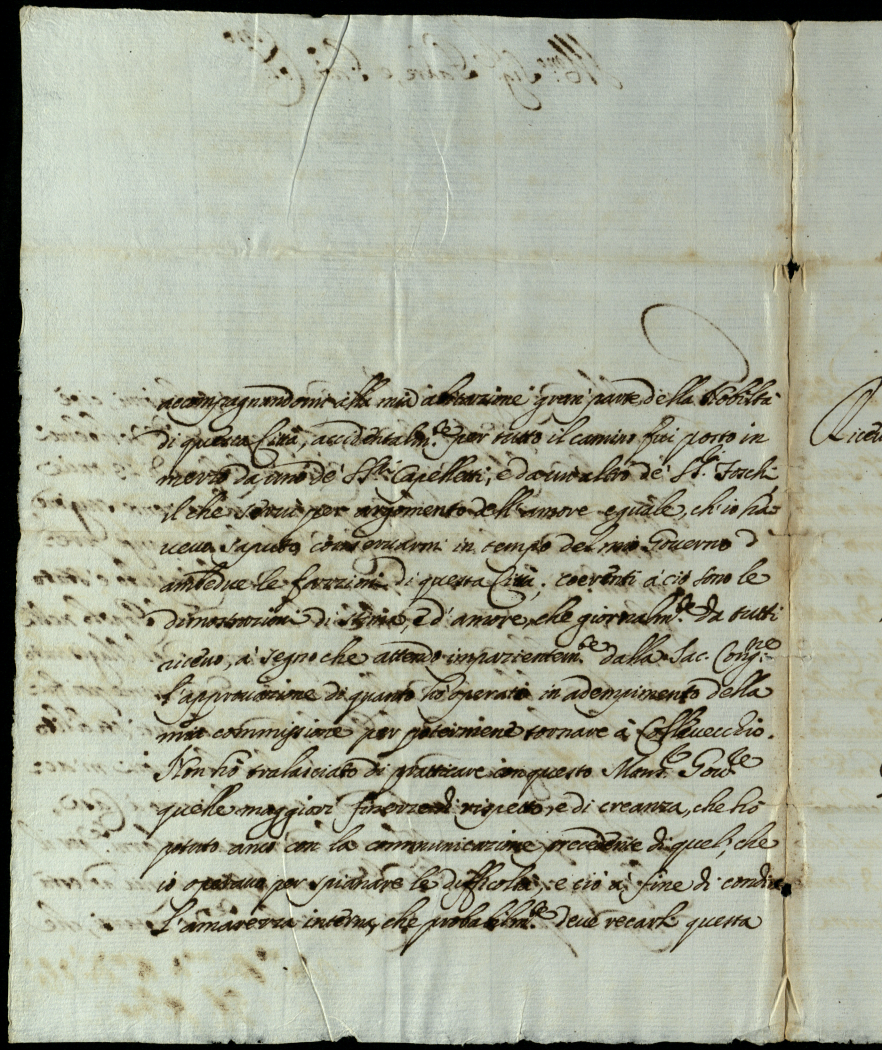 accompagnandomi alla mia abitazione gran parte della Nobiltà
di questa Città, accidentalm.te per tutto il camino fui posto in
mezzo da uno de' SS.ri Capelletti, e da un altro de' SS.ri Foschi
il che servì per argomento dell'amore eguale, ch'io ha=
vevo saputo conservarmi in tempo del mio Governo d'
ambedue le fazzioni di questa Città; coerenti à ciò sono le
dimostrazioni di stima, e d'amore, che giornalm.te da tutti
ricevo, à segno che attendo impazientem.te dalla Sac. Cong.ne
l'approvazione di quanto hò operato in adempimento della
mia commissione per potermene tornare à
Non hò tralasciato di pratticare con questo Mons.re Gov.re
quelle maggiori finezze di rispetto, e di creanza, che hò
potuto anco con la communicazione precedente di quel, che
io operavo per spianare le difficoltà, e ciò à fine di
l'amarezza interna, che probabilm.te deve recarli questa
Ricevu